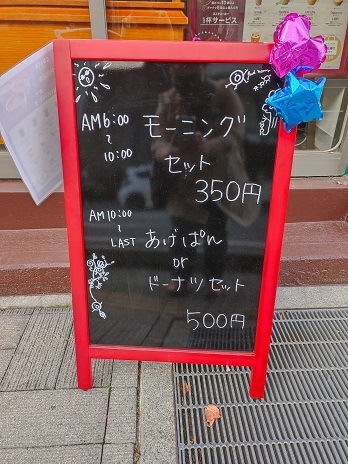 1杯サービス
AM6:00
〜
10:00
モーニング
セット
350円
AM10:00
〜
LAST
あげぱん
or
ドーナツセット
500円